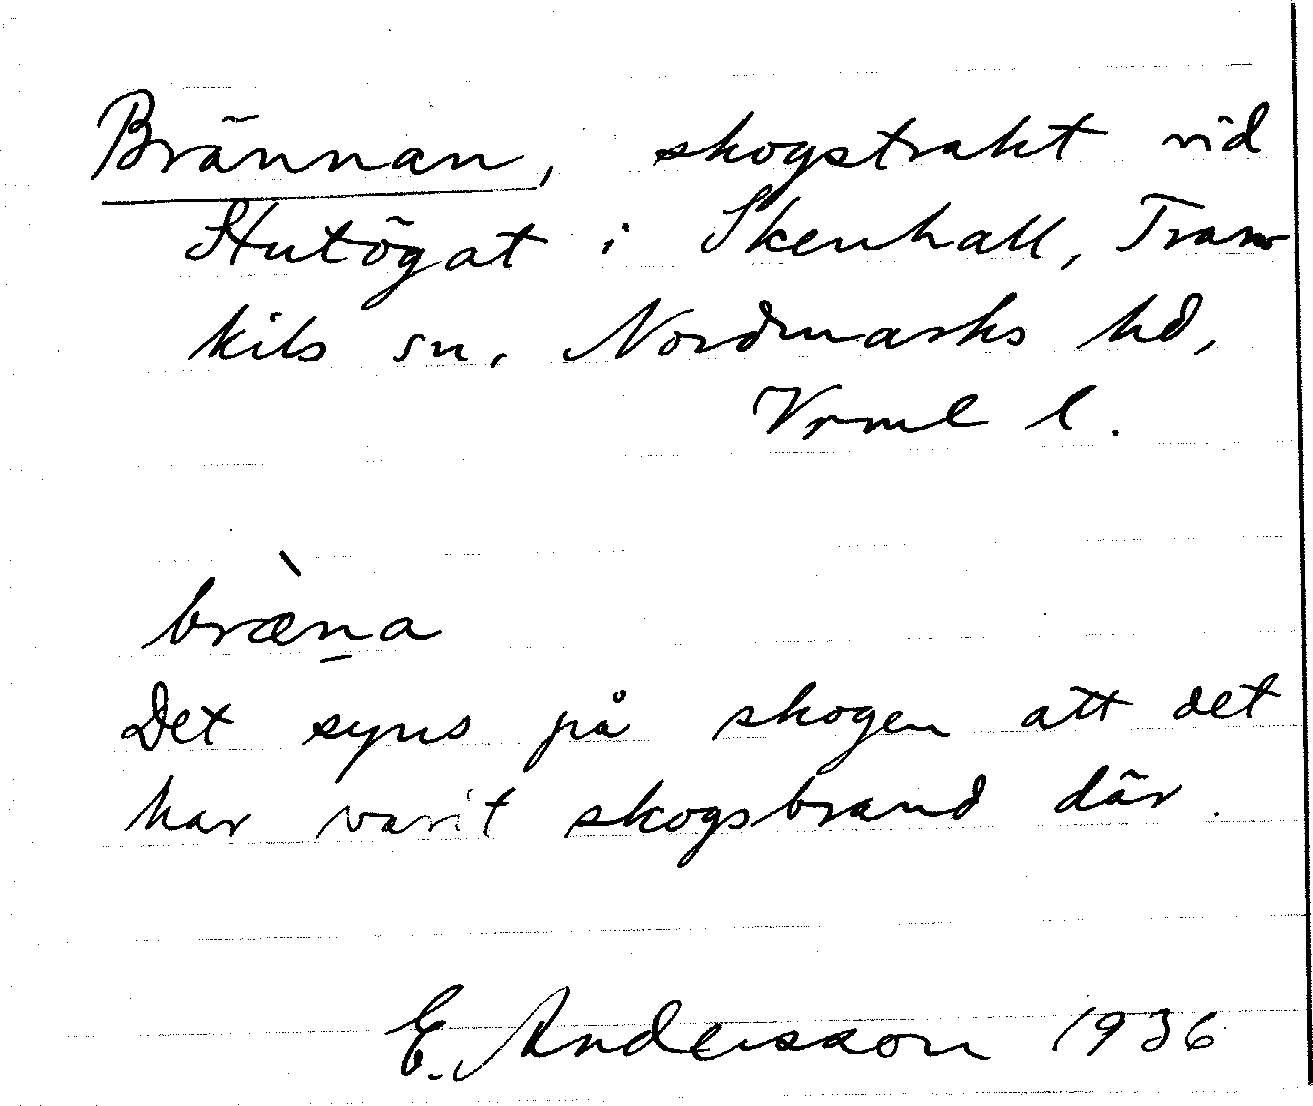 Brännan, skogstrakt vid
Stutögat i Skenhall, Trans-
kils sn. Nordmarks hd,
Vrml l.
bræ̀n̲a
Det syns på skogen att det
har varit skogsbrand där.
E. Andersson 1936